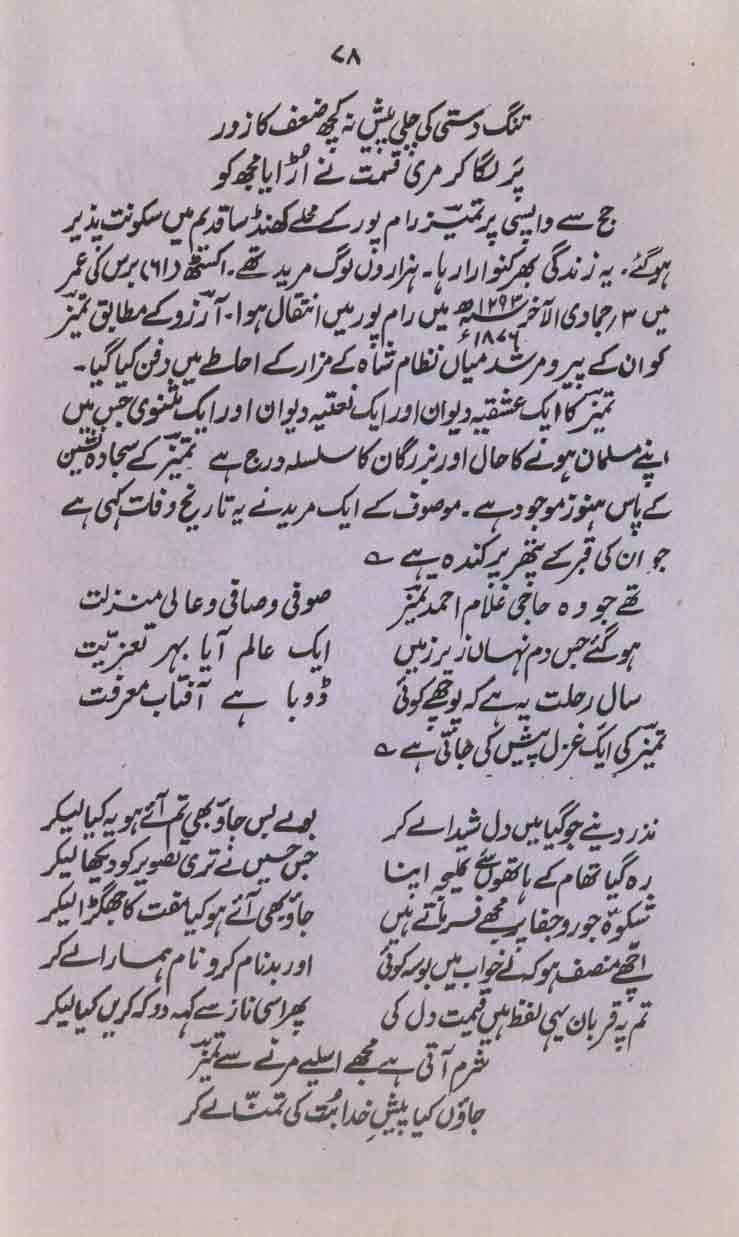 ۷۸
تنگ دستی کی چلی پیش نہ کچھ ضعف کا زور
پَر لگا کر مری قسمت نے اُڑایا مجھ کو
حج سے واپسی پر تمیز رام پور کے محلے کھنڈسا قدیم میں سکونت پذیر
ہوگئے۔ یہ زندگی بھر کنوارا رہا۔ ہزاروں لوگ مرید تھے۔ اکسٹھ (۶۱) برس کی عمر
میں ۳؍ جمادی الآخر ۱۲۹۳ھ ۱۸۷۶ء میں رام پور میں انتقال ہوا۔ آرزو کے مطابق تمیز
کو ان کے پیر و مرشد میاں نظام شاہ کے مزار کے احاطے میں دفن کیا گیا۔
تمیز کا ایک عشقیہ دیوان اور ایک نعتیہ دیوان اور ایک مثنوی جس میں
اپنے مسلمان ہونے کا حال اور بزرگان کا سلسلہ درج ہے تمیز کے سجادہ نشین
کے پاس ہنوز موجود ہے۔ موصوف کے ایک مرید نے یہ تاریخ وفات کہی ہے
جو ان کی قبر کے پتھر پر کندہ ہے ؎
تھے جو وہ حاجی غلام احمد تمیز صوفی و صافی و عالی منزلت
ہوگئے جس دم نہاں زیر زمیں ایک عالم آیا بہر تعزیّت
سال رحلت یہ ہے کہ پوچھے کوئی ڈوبا ہے آفتاب معرفت
تمیز کی ایک غزل پیش کی جاتی ہے ؎
نذر دینے جو گیا میں دل شیدا لے کر بولے بس جاؤ بھی تم آئے ہو یہ کیا لیکر
رہ گیا تھام کے ہاتھوں سے کلیجہ اپنا جس حسیں نے تری تصویر کو دیکھا لیکر
شکوۂ جور و جفا پر مجھے فرماتے ہیں جاؤ بھی آئے ہو کیا مفت کا جھگڑا لیکر
اچھے منصف ہو کہ لے خواب میں بوسہ کوئی اور بدنام کرو نام ہمارا لے کر
تم پہ قربان یہی لفظ ہیں قیمت دل کی پھر اسی ناز سے کہہ دو کہ کریں کیا لیکر
شرم آتی ہے مجھے اسلیے مرنے سے تمیز
جاؤں کیا پیشِ خدا بُت کی تمنّا لے کر